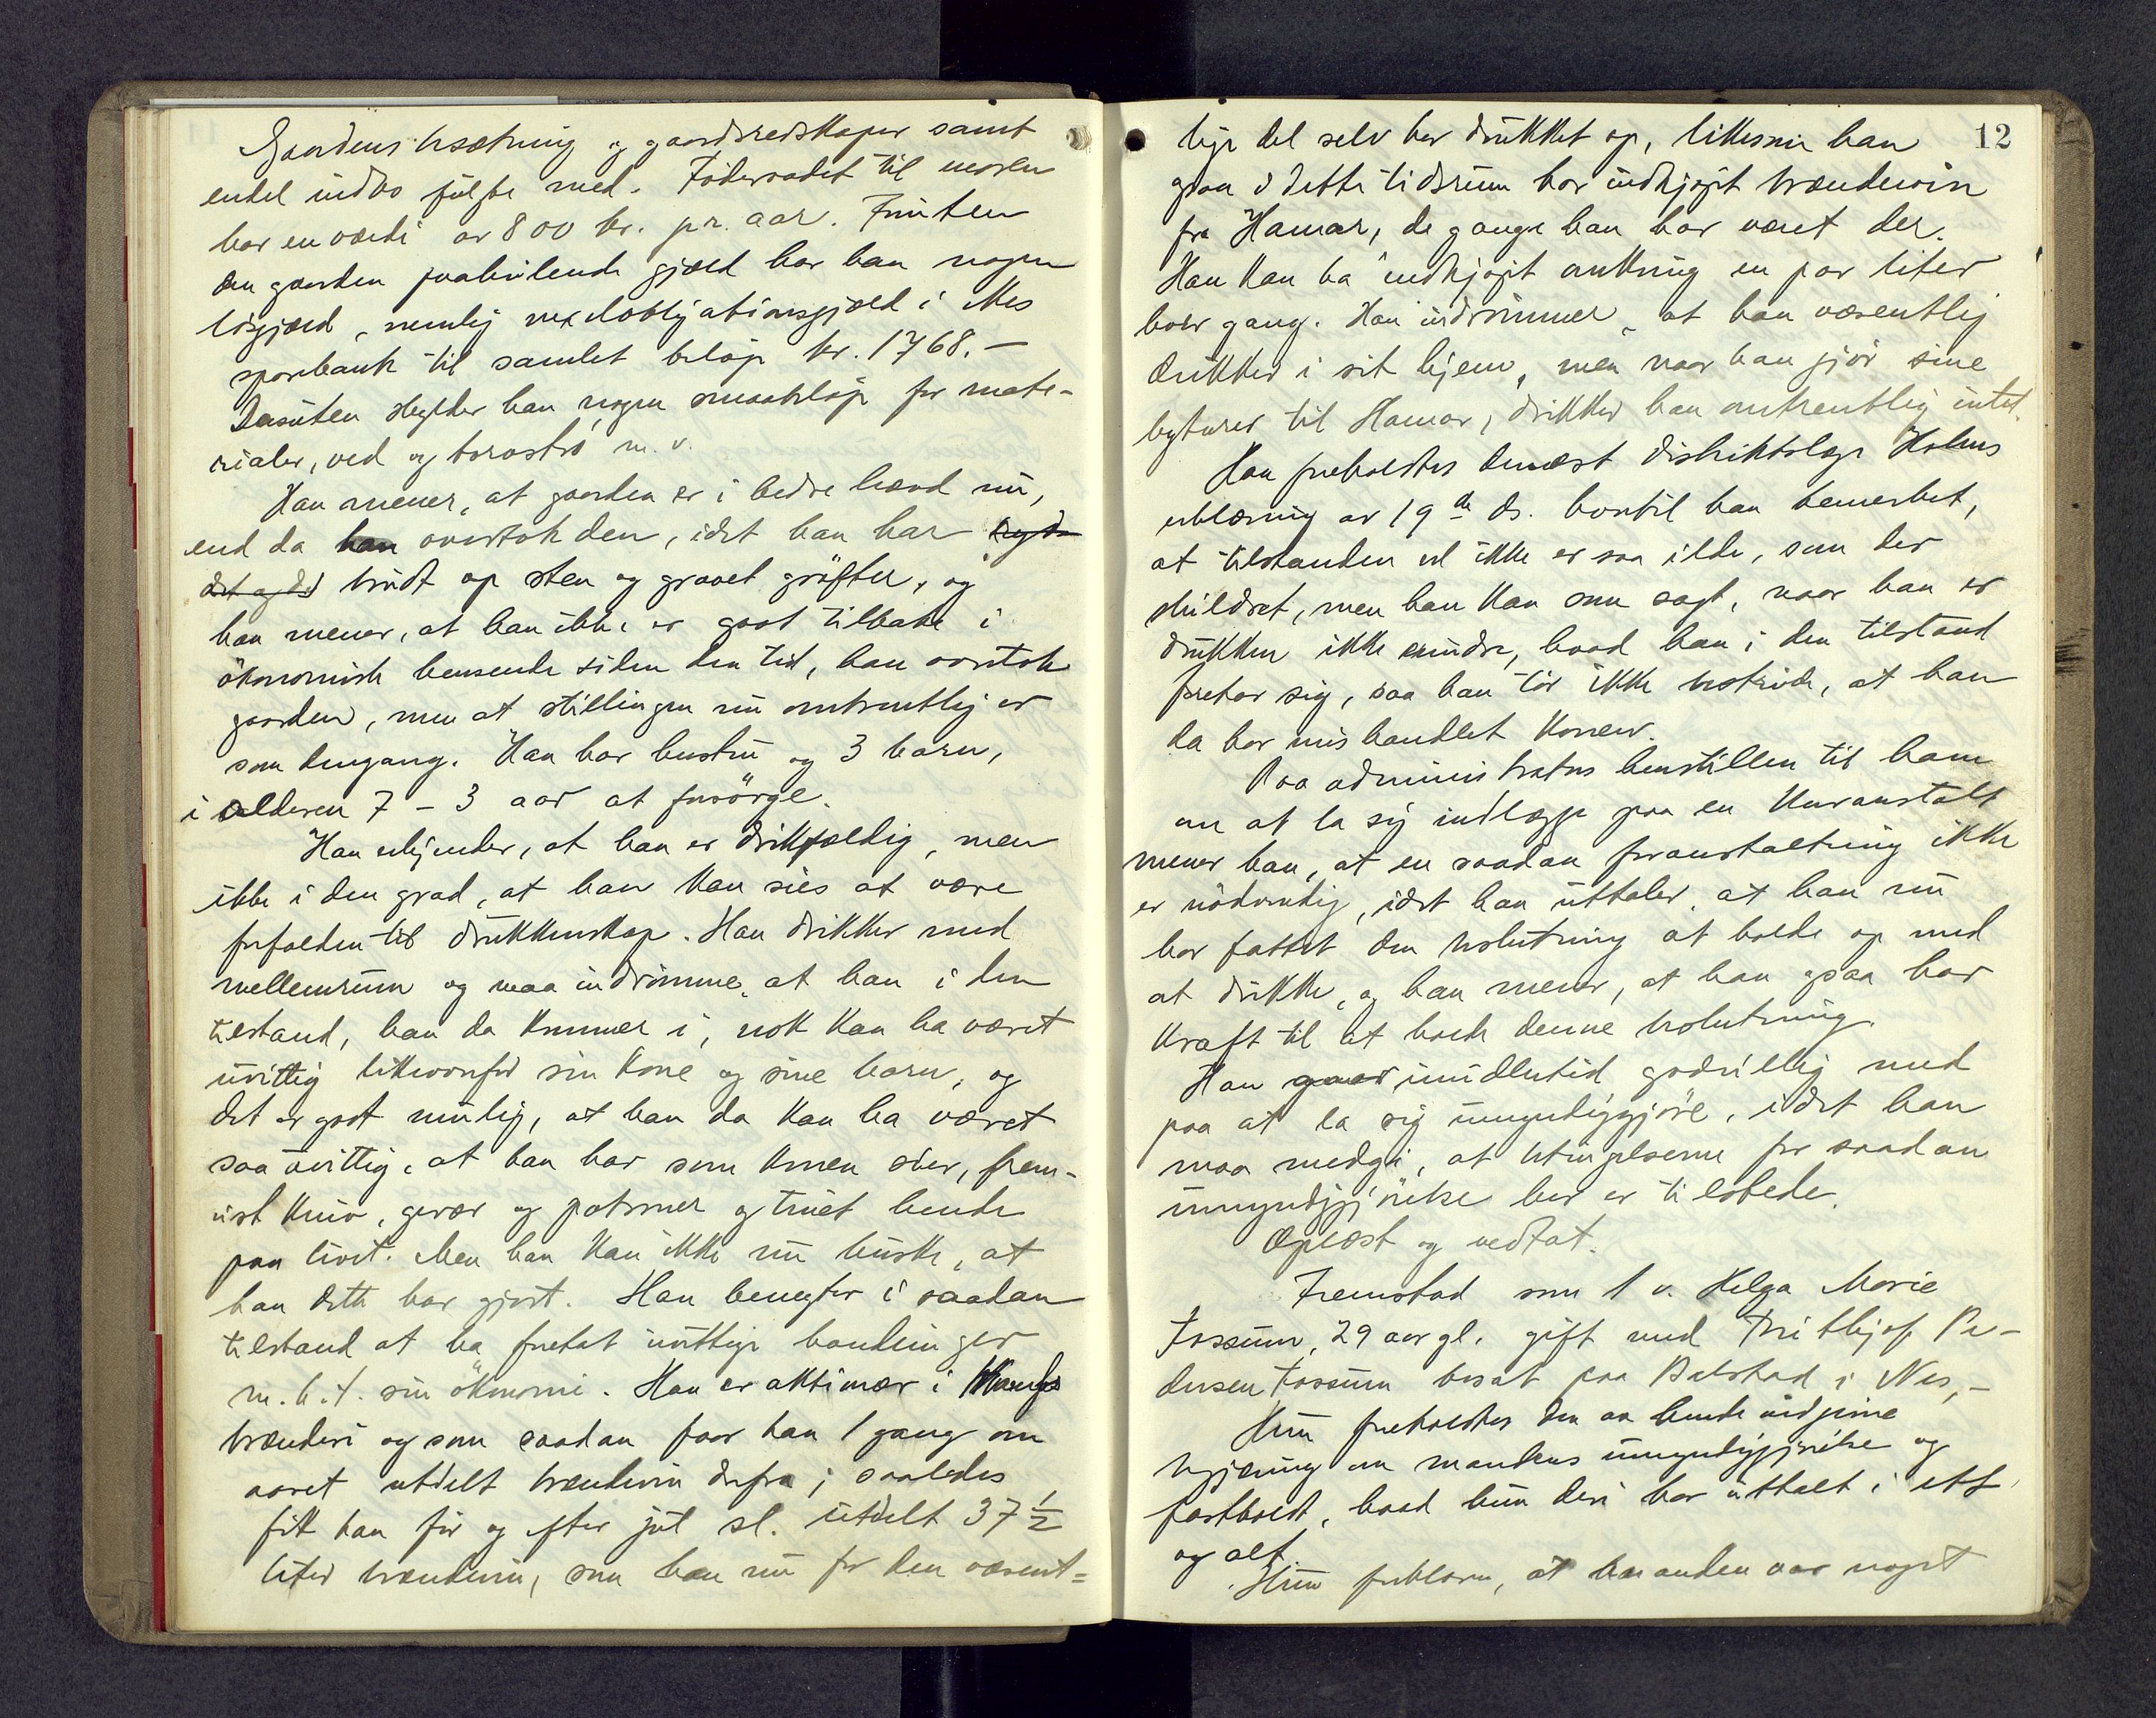 Gaardens besætning og gaardsredskaper samt
endel indbo fulgte med. Föderaadet til moren
har en værdi av 800 kr. pr. aar. Foruten
den gaarden paahvilende gjæld har han nogen
lösgjæld, nemlig vexelobligationsgjæld i Nes
sparebank til samlet belöp kr. 1768.-
Desuten skylder han nogen smaabelöp for mate-
rialer, ved og torvströ m. v.
Han mener, at gaarden er i bedre hævd nu,
end da han overtok den, idet han har
brudt op sten og gravet gröfter, og
han mener, at han ikke er gaat tilbake i
ökonomisk henseende siden den tid, han overtok
gaarden, men at stillingen nu omtrentlig er
som dengang. Han har hustru og 3 barn,
i alderen 7 - 3 aar at forsörge.
Han erkjender, at han er drikfældig, men
ikke i den grad, at han kan sies at være
forfalden til drukkenskap. Han drikker med
mellemrum og maa indrömme, at han i den
tilstand, han da kommer i, nok kan ha været
uvittig likeoverfor sin kone og sine barn, og
det er godt mulig, at han da kan ha været
saa uvittig, at han har som konen sier, frem-
vist kniv, gevær og patroner og truet hende
paa livet. Men han kan ikke nu huske, at
han dette har gjort. Han benegter i saadan
tilstand at ha foretat unyttige handlinger
m. h. t. sin ökonomi. Han er aktionær i
brænderi og som saadan faar han 1 gang om
aaret utdelt brændevin derfra; saaledes
fik han för og efter jul sl. utdelt 37 1/2
liter brændevin, som han nu for den væsent=
12
lige del selv har drukket op, likesom han
ogsaa i dette tidsrum har indkjöpt brændevin
fra Hamar, de gange han har været der.
Han kan ha indkjöpt omkring en par liter
hver gang. Han indrömmer, at han væsentlig
drikker i sit hjem, men naar han gjör sine
byturer til Hamar, drikker han omtrentlig intet.
Han foreholdtes dernæst distriktslæge Holms
erklæring av 19de ds. hvortil han bemerket,
at tilstanden vel ikke er saa ilde, som der
skildret, men han kan som sagt, naar han er
drukken ikke erindre, hvad han i den tilstand
foretar sig, saa han tör ikke bestride, at han
da har mishandlet konen.
Paa administrators henstillen til ham
om at la sig indlægge paa en kuranstalt
mener han, at en saadan foranstaltning ikke
er nödvendig, idet han uttaler, at han nu
har fattet den beslutning at holde op med
at drikke, og han mener, at han ogsaa har
kraft til at holde denne beslutning.
Han gaar imidlertid godvillig med
paa at la sig umyndiggjöre, idet han
maa medgi, at betingelserne for saadan
umyndiggjörelse her er tilstede.
Oplæst og vedtat.
Fremstod som 1 v. Helga Marie
Fossum, 29 aar gl. gift med Frithjof Pe-
dersen Fossum bosat paa Balstad i Nes,-
Hun foreholdtes den av hende indgivne
begjæring om mandens umyndiggjörelse og
fastholdt, hvad hun deri har uttalt i ett
og alt.
Hun forklarer, at manden var noget